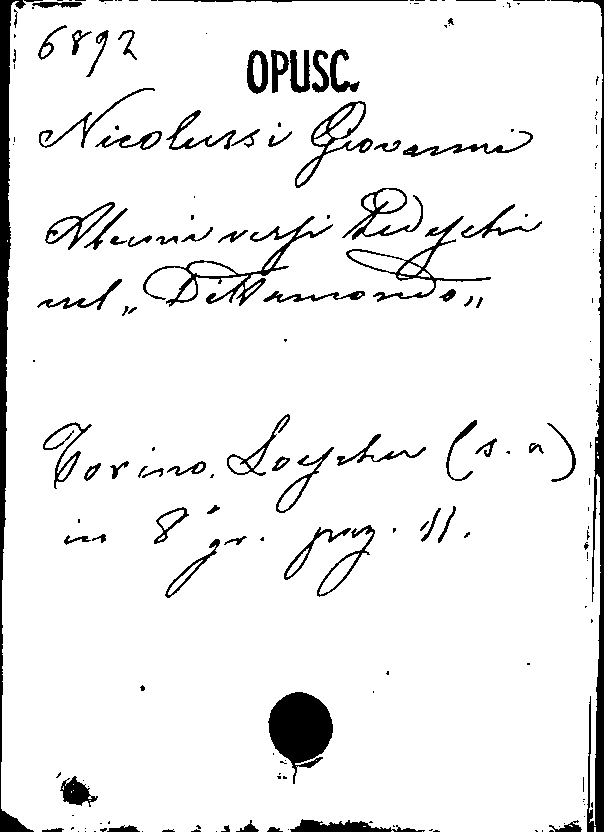 6892
OPUSC.
Nicolussi Giovanni
Alcuni versi Tedeschi
nel „Dittamondo„
Torino. Loescher (s. a)
in 8° gr. pag. 11.